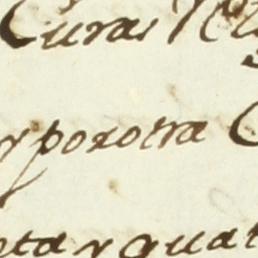 Curas
y por otra
ta y quat